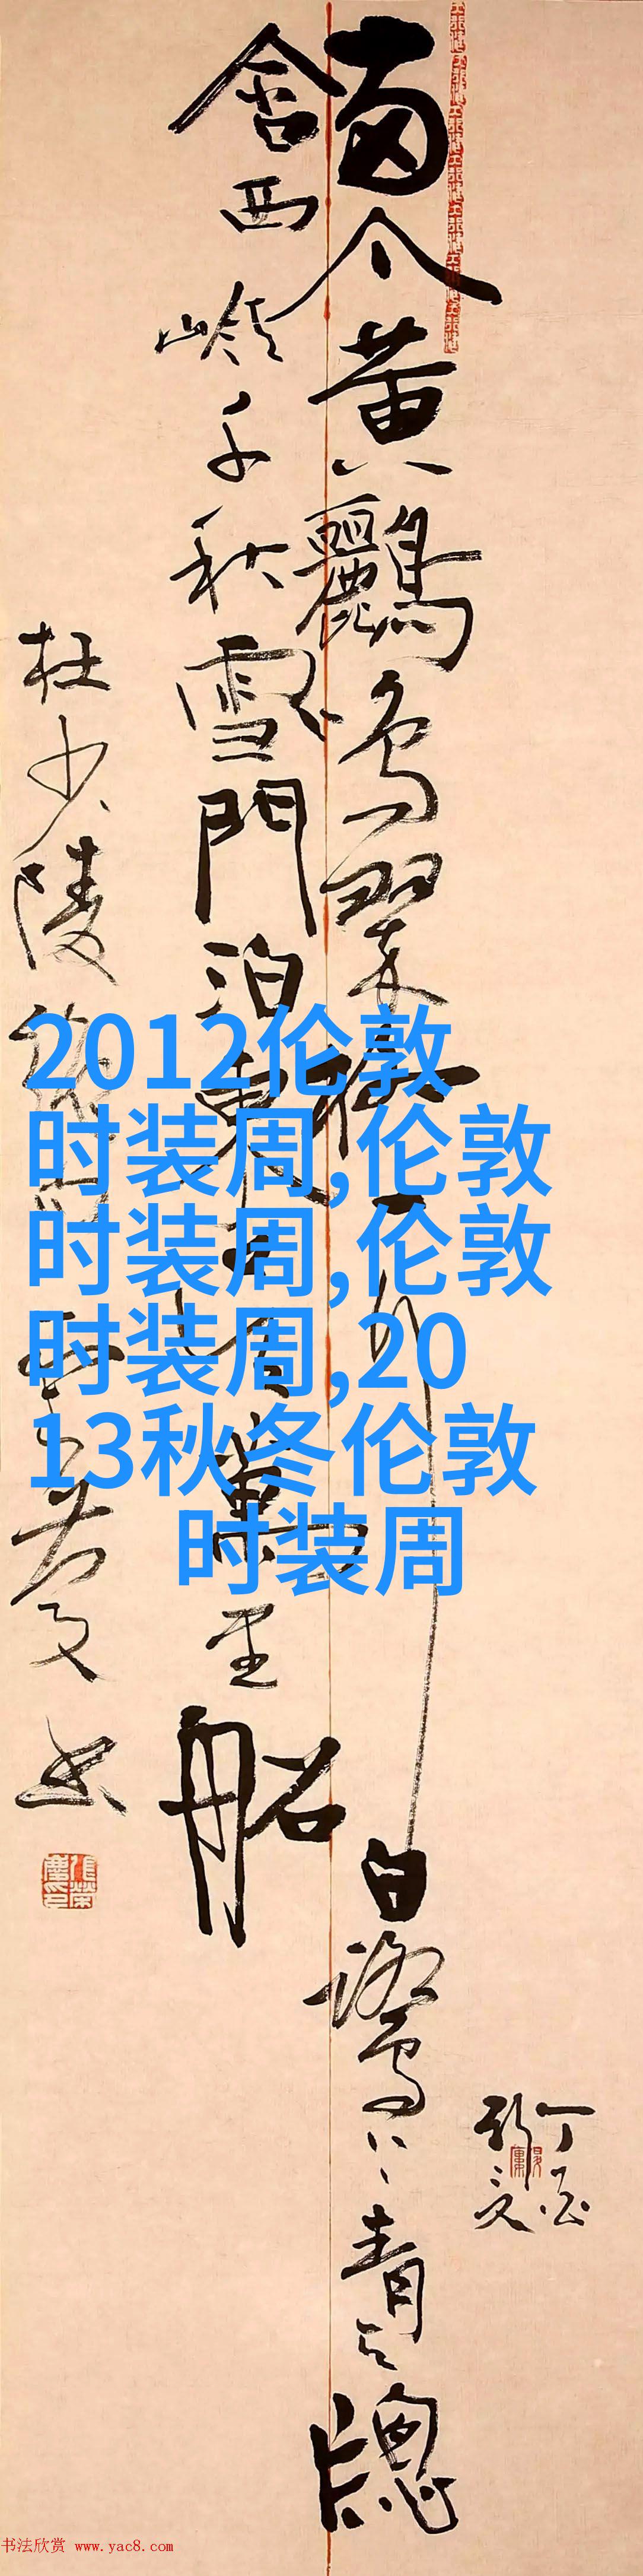 2012伦敦
时装周,伦敦
时装周,伦敦
时装周,20
13秋冬伦敦
时装周
兩个黃鸝鳴翠柳一行白鷺上青天牕
含西嶺千秋雪門泊東吳萬里船
杜少陵
丁酉
书法欣赏 www.yac8.com